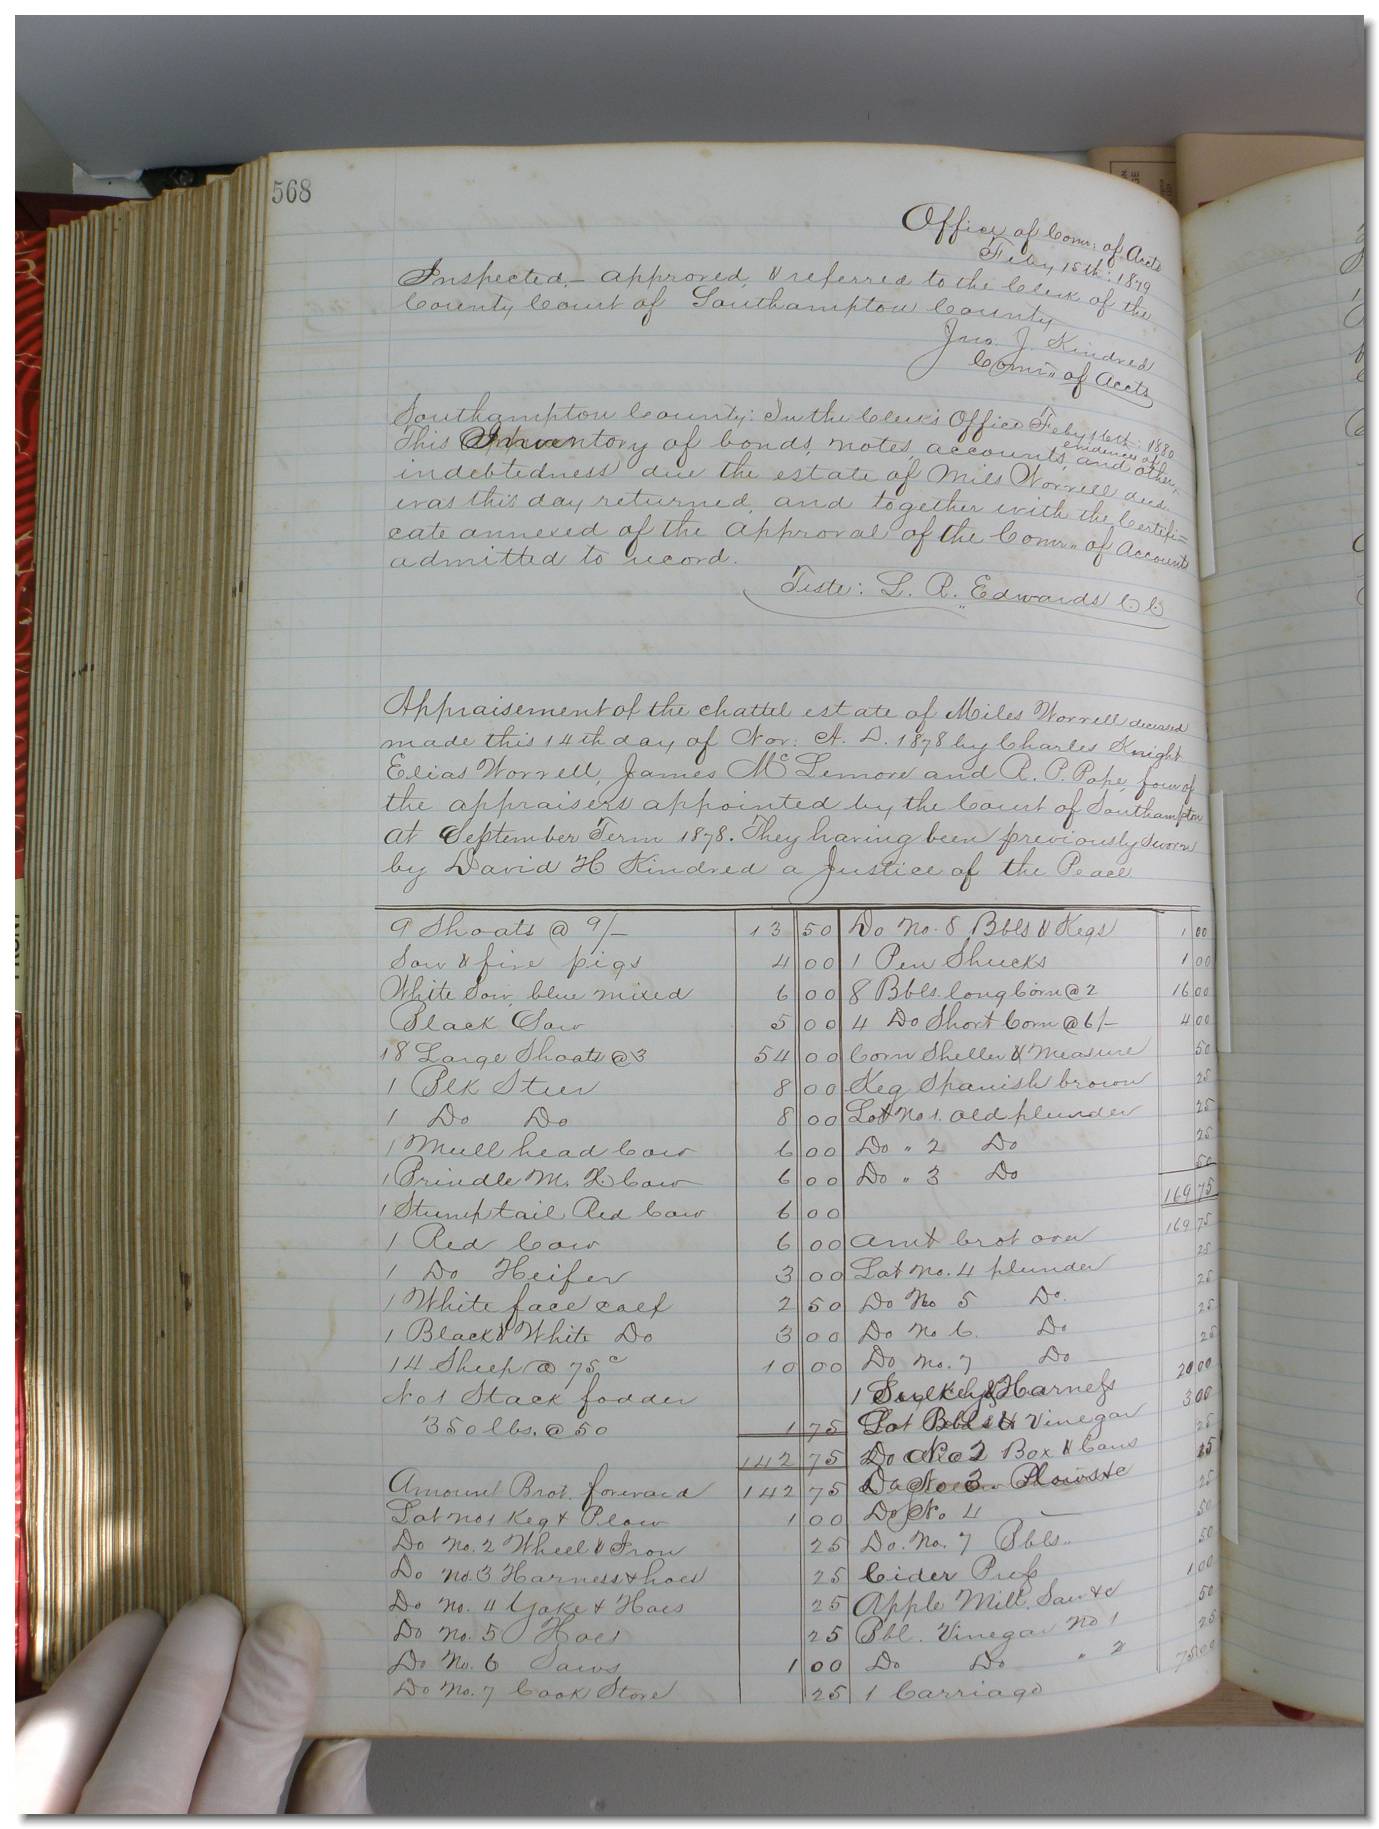 568
Office of Comr. of Accts
Feby 15th: 1879
Inspected,- approved, & referred to the Clerk of the
County Court of Southampton County
Jno. J. Kindred
Comr. of Accts
Southampton County: In the Clerk's Office Feby 16th: 1880
This Inventory of bonds, notes, accounts, and other evidences of
indebtedness due the estate of Mils Worrell decd.
was this day returned, and together with the Certifi=
cate annexed of the Approval of the Comr. of Accounts
admitted to record.
Teste: L. R. Edwards C C
Appraisement of the chattel estate of Miles Worrell deceased
made this 14th day of Nov: A. D. 1878 by Charles Knight
Elias Worrell, James McLemore and R. P. Pope, four of
the appraisers appointed by the Court of Southampton
at September Term 1878. They having been previously sworn
by David H Kindred a Justice of the Peace
9 Shoats @ 9/- 13 50
Sow & five pigs 4 00
White Sow, blue mixed 6 00
Black Sow 5 00
18 Large Shoats @ 3 54 00
1 Blk Steer 8 00
1 Do Do 8 00
1 Mull head Cow 6 00
1 Brindle M. H. Cow 6 00
1 Stump tail Red Cow 6 00
1 Red Cow 6 00
1 Do Heifer 3 00
1 White face calf 2 50
1 Black & White Do 3 00
14 Sheep @ 75c 10 00
No 1 Stack fodder
350 lbs. @ 50 1 75
142 75
Amount Brot. forward 142 75
Lot no 1 Keg & Plow 1 00
Do No. 2 Wheel & Iron 25
Do No. 3 Harness & hoes 25
Do No. 4 Yoke & Hoes 25
Do No. 5 Hoes 25
Do No. 6 Saws 1 00
Do No. 7 Cook Stove 25
Do No. 8 Bbls & Kegs 1 00
1 Pen Shucks 1 00
8 Bbls. long Corn @ 2 16 00
4 Do Short Corn @ 6/- 4 00
Corn Sheller & Measure 50
Keg Spanish brown 25
Lot No 1. old plunder 25
Do " 2 Do 25
Do " 3 Do 50
169 75
amt brot over 169 75
Lot No. 4 plunder 25
Do No 5 Do. 25
Do No 6. Do 25
Do No. 7 Do 25
1 Sulkey & Harness 20 00
Lot Bbls & Vinegar 3 00
Do No 2 Box & Cans 25
Do No 3 Plows &c 25
Do No. 4 25
Do. No. 7 Bbls.. 50
Cider Press 50
Apple Mill, Saw &c 1 00
Bbl. Vinegar No 1 50
Do Do " 2 25
1 Carriage 75 00